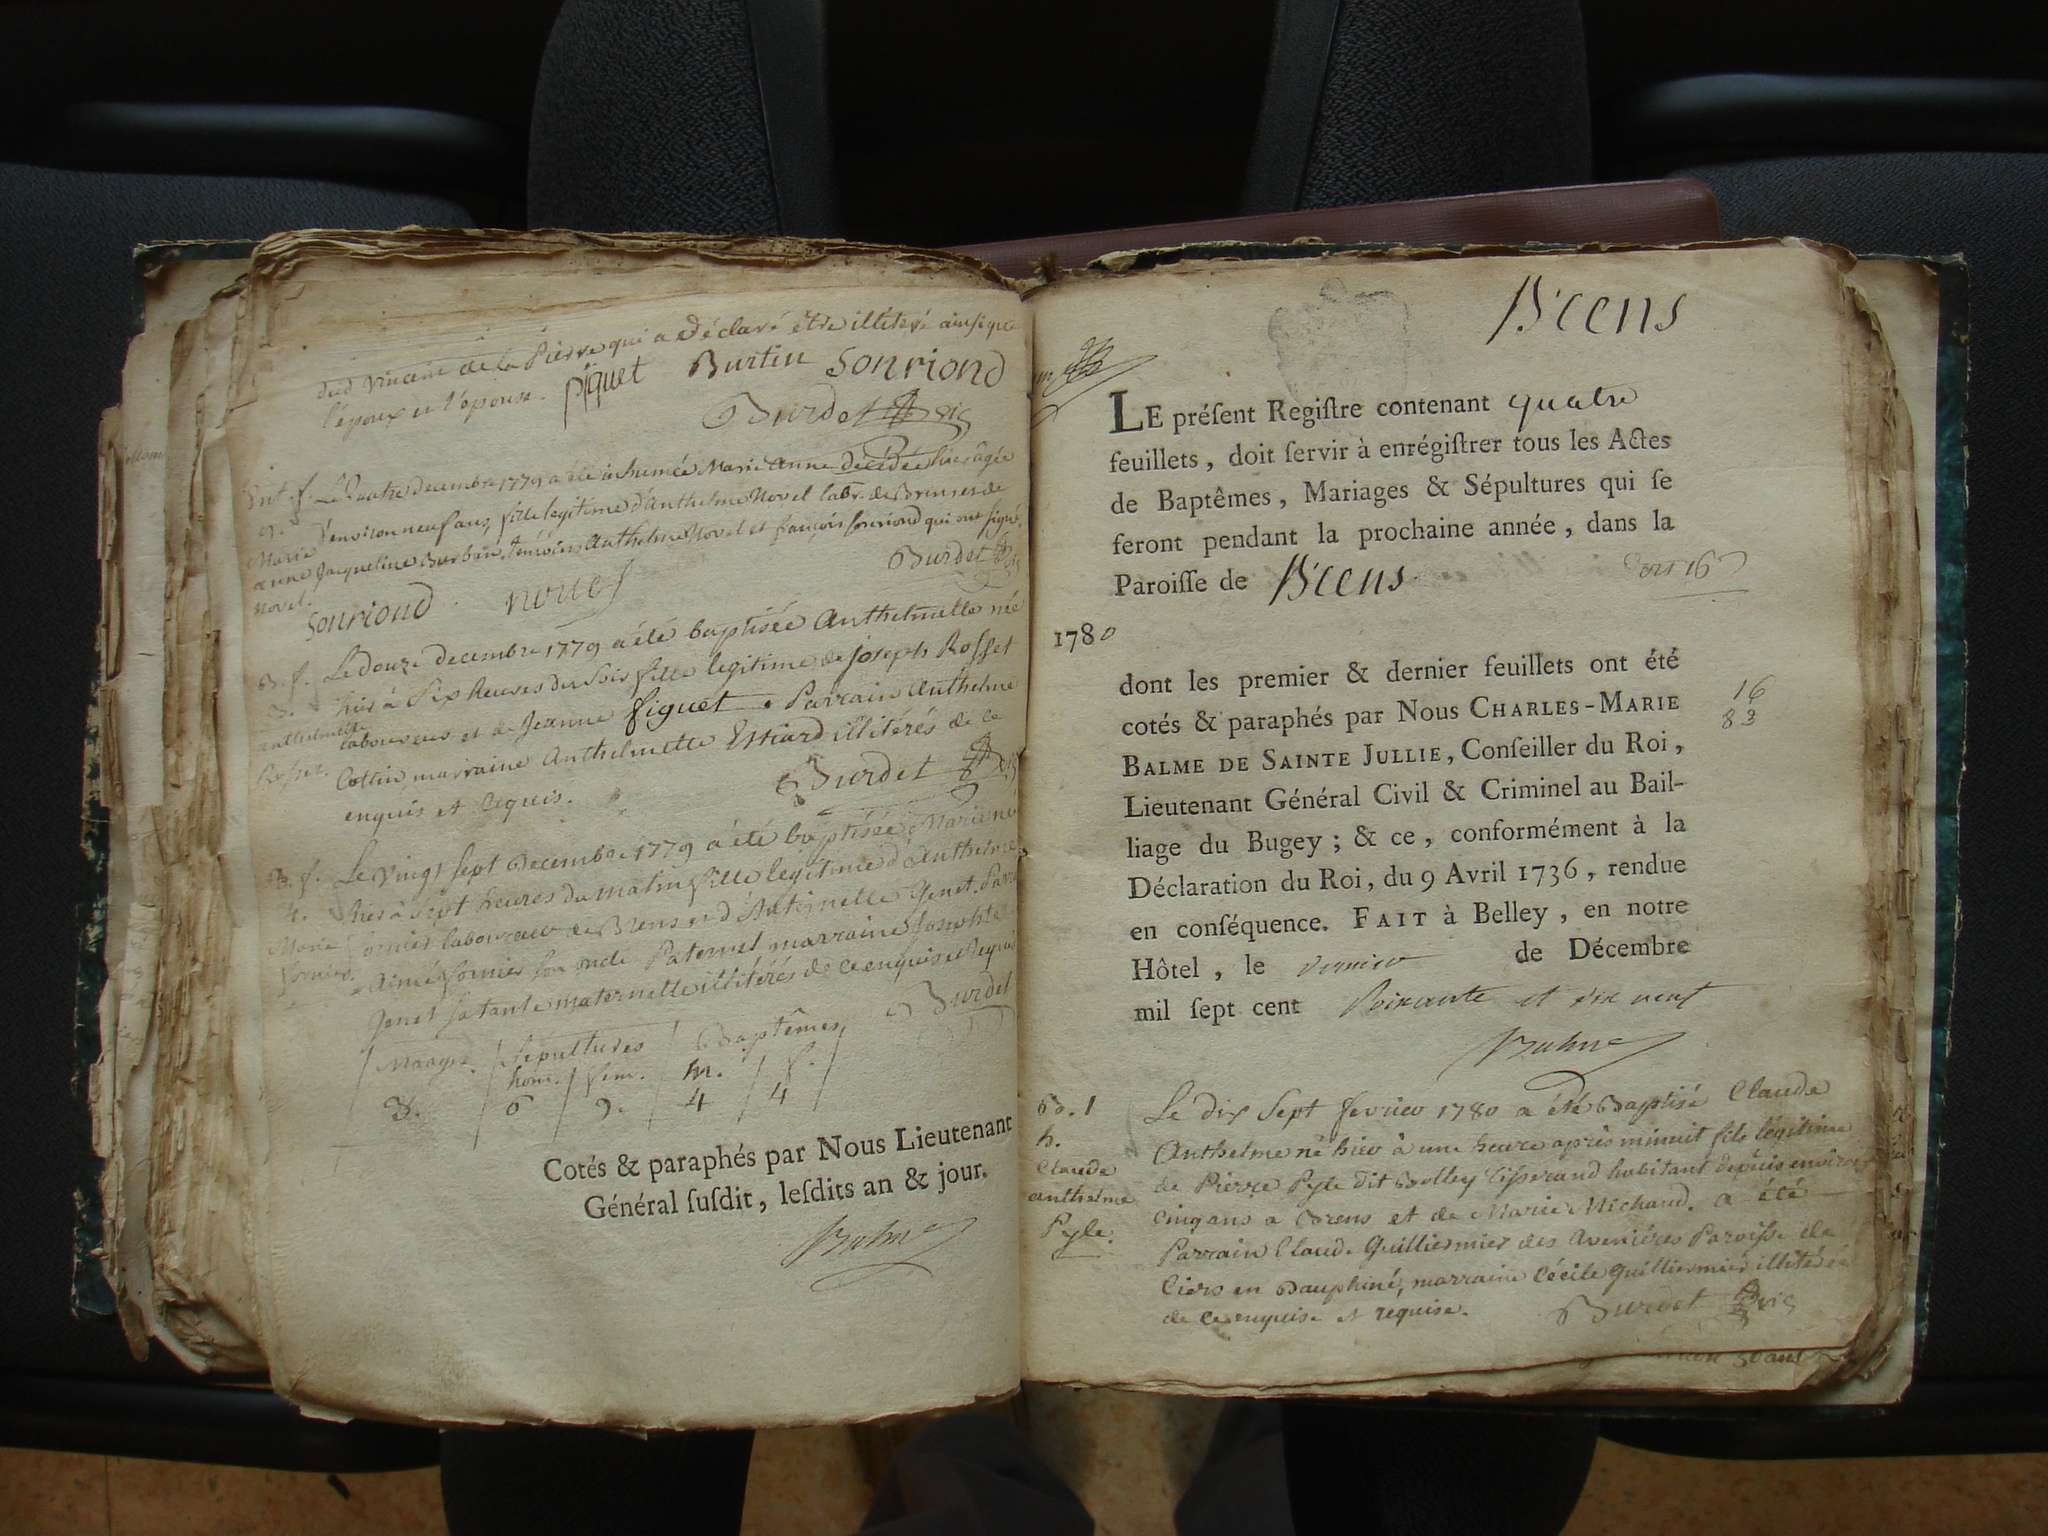 dud. vincent de la Pierre qui a déclaré être illiteré ainsi que
l'epoux et l'epouse. piguet Burtin Sonriond
Burdet
Ent. f. Le Quatre decembre 1779 a été inhumée Marie anne décédée hier, agée
9. d'environ neuf ans, fille legitime d'anthelme Novel labr. de Brens et de
Marie
anne Jacqueline Burban, témoins Anthelme Novel et françois Sonriond qui ont signé.
Novel. Burdet
Sonriond novel
B. f. Le douze decembre 1779 a été baptisée Anthelmette née
3. hier à Six heures du Soir fille legitime de joseph Rosset
anthelmette laboureur et de Jeanne figuet. Parrain Anthelme
Rosset. Cottin, marraine Anthelmette Essiard illiterés de ce
enquis et requis. Burdet
B. f. Le vingt sept Decembre 1779 a été baptisée Marie née
4. hier à sept heures du matin fille legitime d'anthelme
Marie fornier laboureur de Brens et d'Antoinette Genet. Parr.
fornier. aimé fornier son oncle Paternel marraine Josephte
Genet sa tante maternelle illiterés de ce enquis et requis
Burdet
Mariages. Sepultures Baptêmes
hom. fem. m. f.
3. 6 9. 4 4
Cotés & paraphés par Nous Lieutenant
Général ſuſdit, leſdits an & jour.
Balme
Brens
LE préſent Regiſtre contenant quatre
feuillets, doit ſervir à enrégiſtrer tous les Actes
de Baptêmes, Mariages & Sépultures qui ſe
feront pendant la prochaine année, dans la
Paroiſſe de Brens
1780
dont les premier & dernier feuillets ont été
cotés & paraphés par Nous CHARLES-MARIE
BALME DE SAINTE JULLIE, Conſeiller du Roi,
Lieutenant Général Civil & Criminel au Bail-
liage du Bugey; & ce, conformément à la
Déclaration du Roi, du 9 Avril 1736, rendue
en conſéquence. FAIT à Belley, en notre
Hôtel, le premier de Décembre
mil ſept cent soixante et dix neuf
Balme
16
83
B. 1 Le dix Sept fevrier 1780 a été Baptisé Claude
h. Anthelme né hier à une heure après minuit fils légitime
Claude de Pierre Pyle dit Bolley tisserand habitant depuis environ
anthelme cinq ans a Brens et de Marie Michaud. a été
Pyle. Parrain Claude Guilliermier des Avenières Paroisse de
Ciers en Dauphiné, marraine Cécile Guilliermier illiterés
de ce enquise et requise. Burdet